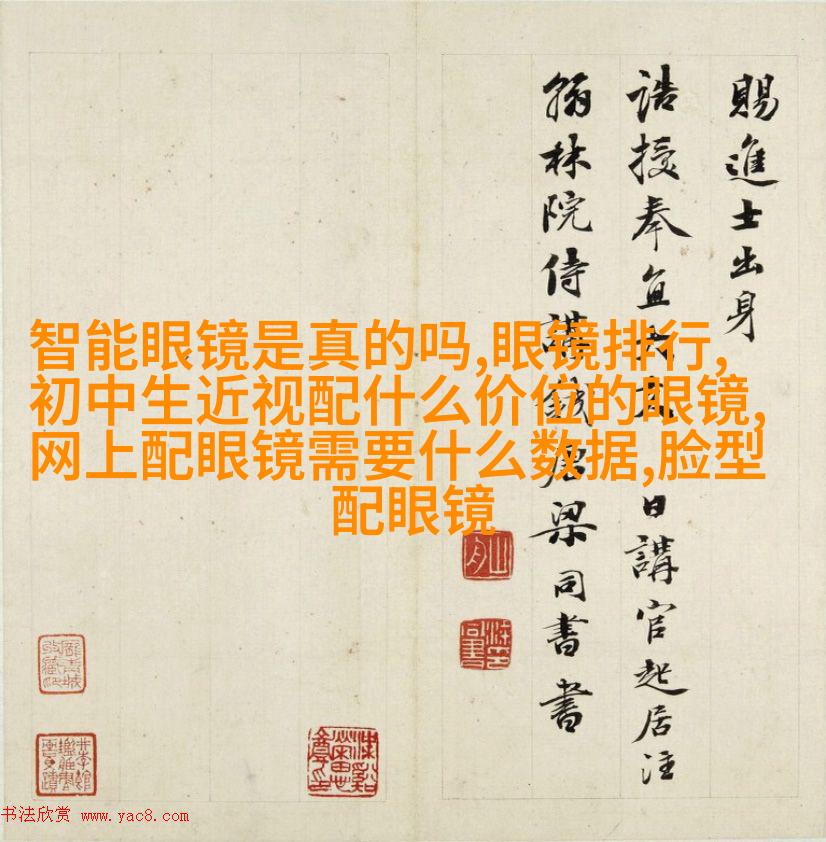 智能眼镜是真的吗,眼镜排行,
初中生近视配什么价位的眼镜,
网上配眼镜需要什么数据,脸型
配眼镜
賜進士出身
誥授奉直大夫日講官起居注
翰林院侍講錢唐梁同書書
书法欣赏 www.yac8.com